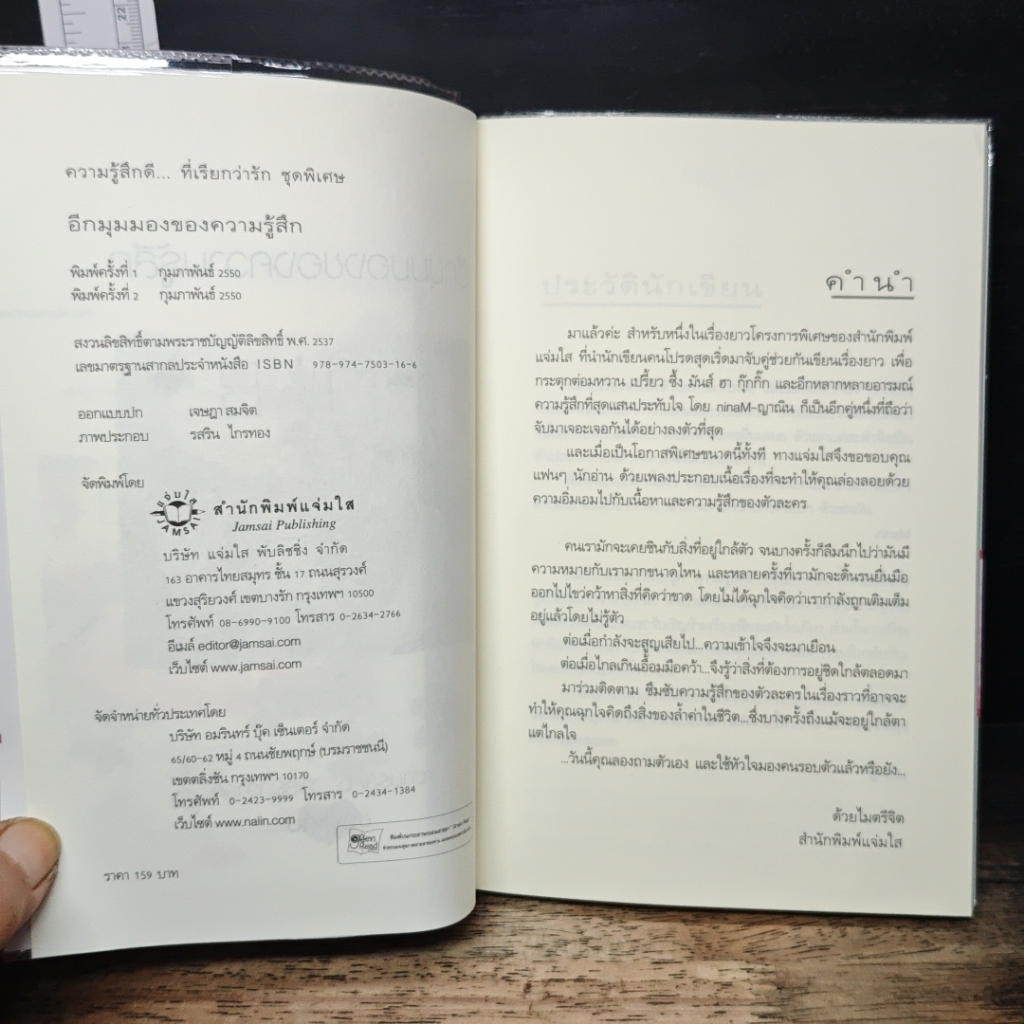 22
ความรู้สึกดี... ที่เรียกว่ารัก ชุดพิเศษ
อีกมุมมองของความรู้สึก
พิมพ์ครั้งที่ 1 กุมภาพันธ์ 2550
พิมพ์ครั้งที่ 2 กุมภาพันธ์ 2550
สงวนลิขสิทธิ์ตามพระราชบัญญัติลิขสิทธิ์ พ.ศ. 2537
เลขมาตรฐานสากลประจำหนังสือ ISBN 978-974-7503-16-6
ออกแบบปก เจษฎา สมจิต
ภาพประกอบ รสริน ไกรทอง
จัดพิมพ์โดย
แจ่มใส JAMSAI
สำนักพิมพ์แจ่มใส
Jamsai Publishing
บริษัท แจ่มใส พับลิชชิ่ง จำกัด
163 อาคารไทยสมุทร ชั้น 17 ถนนสุรวงศ์
แขวงสุริยวงศ์ เขตบางรัก กรุงเทพฯ 10500
โทรศัพท์ 08-6990-9100 โทรสาร 0-2634-2766
อีเมล์ editor@jamsai.com
เว็บไซต์ www.jamsai.com
จัดจำหน่ายทั่วประเทศโดย
บริษัท อมรินทร์ บุ๊ค เซ็นเตอร์ จำกัด
65/60-62 หมู่ 4 ถนนชัยพฤกษ์ (บรมราชชนนี)
เขตตลิ่งชัน กรุงเทพฯ 10170
โทรศัพท์ 0-2423-9999 โทรสาร 0-2434-1384
เว็บไซต์ www.naiin.com
Green Read
ราคา 159 บาท
คำนำ
มาแล้วค่ะ สำหรับหนึ่งในเรื่องยาวโครงการพิเศษของสำนักพิมพ์
แจ่มใส ที่นำนักเขียนคนโปรดสุดเริ่ดมาจับคู่ช่วยกันเขียนเรื่องยาว เพื่อ
กระตุกต่อมหวาน เปรี้ยว ซึ้ง มันส์ ฮา กุ๊กกิ๊ก และอีกหลากหลายอารมณ์
ความรู้สึกที่สุดแสนประทับใจ โดย ninaM-ญาณิน ก็เป็นอีกคู่หนึ่งที่ถือว่า
จับมาเจอะเจอกันได้อย่างลงตัวที่สุด
และเมื่อเป็นโอกาสพิเศษขนาดนี้ทั้งที ทางแจ่มใสจึงขอขอบคุณ
แฟนๆ นักอ่าน ด้วยเพลงประกอบเนื้อเรื่องที่จะทำให้คุณล่องลอยด้วย
ความอิ่มเอมไปกับเนื้อหาและความรู้สึกของตัวละคร
คนเรามักจะเคยชินกับสิ่งที่อยู่ใกล้ตัว จนบางครั้งก็ลืมนึกไปว่ามันมี
ความหมายกับเรามากขนาดไหน และหลายครั้งที่เรามักจะดิ้นรนยื่นมือ
ออกไปไขว่คว้าหาสิ่งที่คิดว่าขาด โดยไม่ได้ฉุกใจคิดว่าเรากำลังถูกเติมเต็ม
อยู่แล้วโดยไม่รู้ตัว
ต่อเมื่อกำลังจะสูญเสียไป...ความเข้าใจจึงจะมาเยือน
ต่อเมื่อไกลเกินเอื้อมมือคว้า...จึงรู้ว่าสิ่งที่ต้องการอยู่ชิดใกล้ตลอดมา
มาร่วมติดตาม ซึมซับความรู้สึกของตัวละครในเรื่องราวที่อาจจะ
ทำให้คุณฉุกใจคิดถึงสิ่งของล้ำค่าในชีวิต...ซึ่งบางครั้งถึงแม้จะอยู่ใกล้ตา
แต่ไกลใจ
...วันนี้คุณลองถามตัวเอง และใช้หัวใจมองคนรอบตัวแล้วหรือยัง...
ด้วยไมตรีจิต
สำนักพิมพ์แจ่มใส